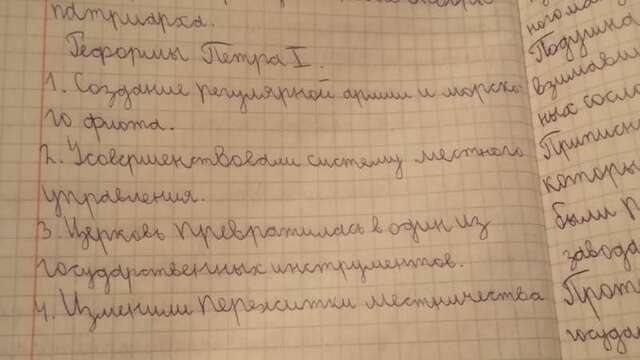 патриарха.
Реформы Петра I.
1. Создание регулярной армии и морско
го флота.
2. Усовершенствовали систему местного
управления.
3. Церковь превратилась в один из
государственных инструментов.
4. Изменили пережитки местничества
Подушна
взимавши
ных сосло
Приписн
которы
были п
завода
государ